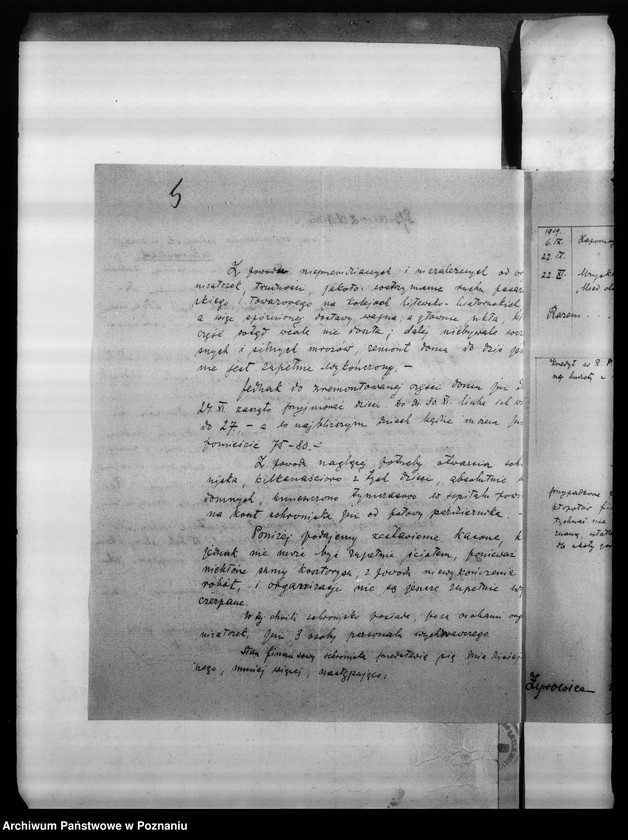 5
Z powodu nieprzewidzianych i niezależnych od or
nizatorek, trudności, jakoto: wstrzymanie ruchu pasaż
skiego i towarowego na kolejach litewsko-białoruskich
a więc spóźnionej dostawy, wagna, a głównie szkła, k
część dotąd wcale nie doszła; dalej niebywale wcz
snych i silnych mrozów, remont domu do dziś je
nie jest zupełnie wykończony. -
Jednak do wremontowanej części domu już d
24. XI. zaczęto przyjmować dzieci. Do dn. 30. XI. liczba ich w
do 27, - a w najbliższym dniach będzie można już
pomieścić 75-80. -
Z powodu nagłej potrzeby otwarcia sch
niska, kilkanaścioro z tych dzieci, absolutnie b
domnych, umieszczono tymczasowo w szpitalu powi
na koszt schroniska już od połowy października -
Poniżej podajemy zestawienie kasowe, k
jednak nie może być zupełnie ścisłem, ponieważ
niektóre sumy kosztorysu, z powodu niewykończenia
robót, i organizacji nie są jeszcze zupełnie wy
czerpane.
W tej chwili schronisko posiada, poza osobami org
nizatorek, już 3 osoby personelu wychowawczego
Stan finansowy schroniska przedstawia się dnia dzisiej
nego, mniej więcej, następująco:
1919.
6. IX.
22. IX.
22. XI.
Razem . .
Kredyt w R. P.
na kwotę
przypadkowe
kłopotów fi
tychczas nie
znaną, ustal
do szkoły go
Żyrowice
Archiwum Państwowe w Poznaniu